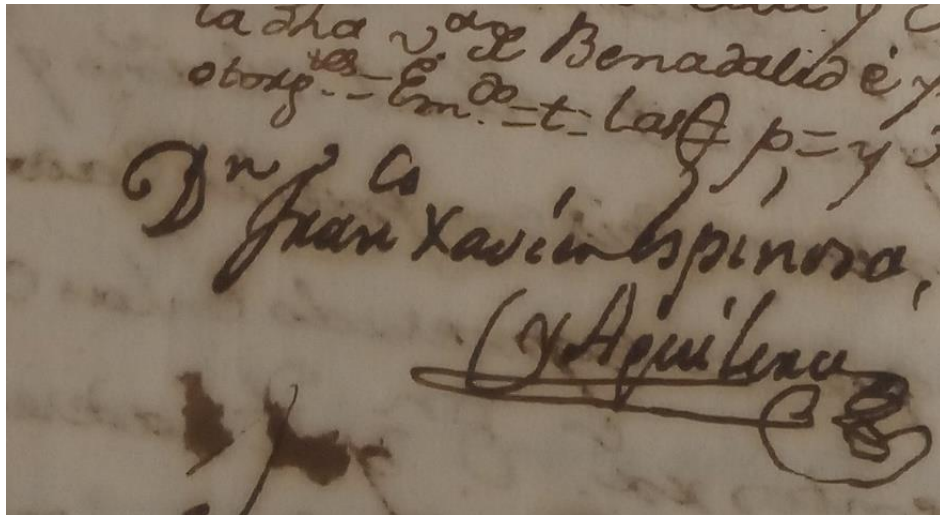 la dha v.ª de Benadalid é y
otorg.tes = Em.do = t = las = p, = y
Dn Franco Xavier Espinosa,
y Aguilera